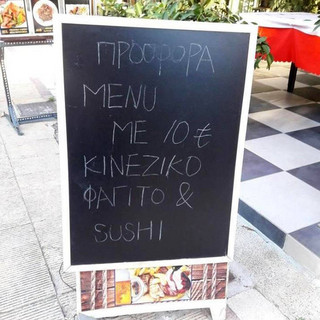 ΠΡΟΣΦΟΡΑ
MENU
ΜΕ 10 €
ΚΙΝΕΖΙΚΟ
ΦΑΓΙΤΟ &
SUSHI